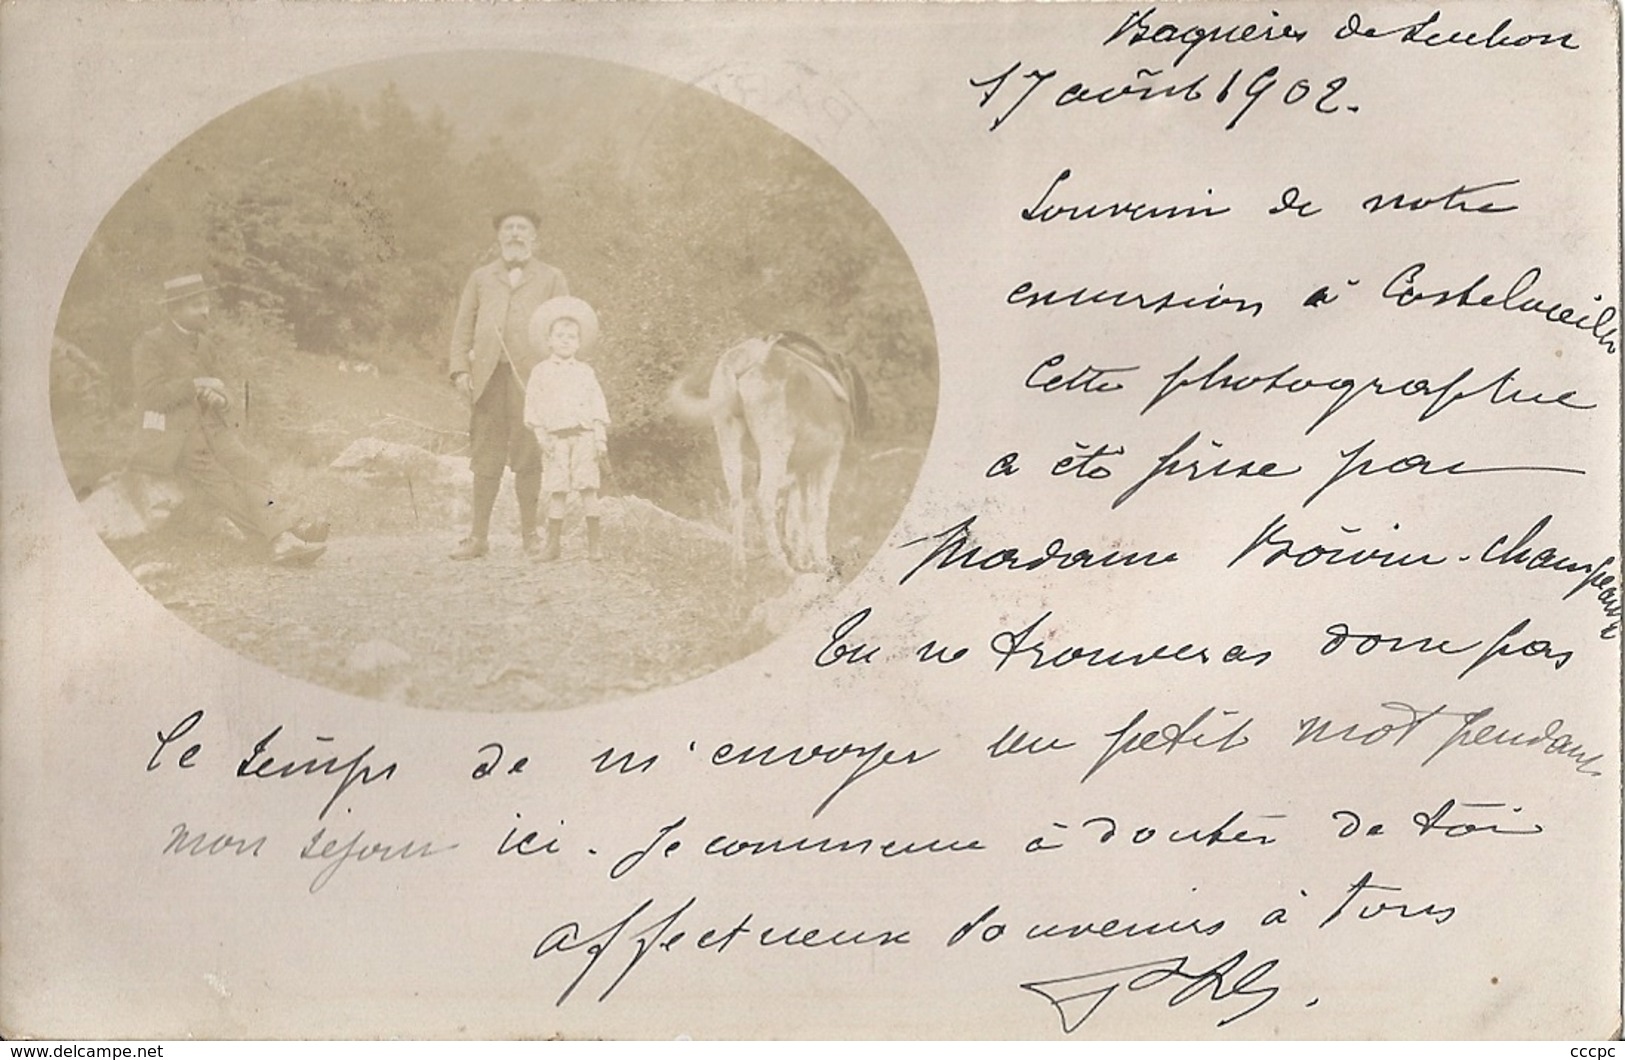 Bagnères de Luchon
17 août 1902.
Souvenir de notre
excursion à Castelvieilh
Cette photographie
a été prise par
Madame Boivin-Champeaux
Tu ne trouveras donc pas
le temps de m'envoyer un petit mot pendant
mon séjour ici. Je commence à douter de toi
affectueux souvenirs à tous
delcampe.net
cccpc